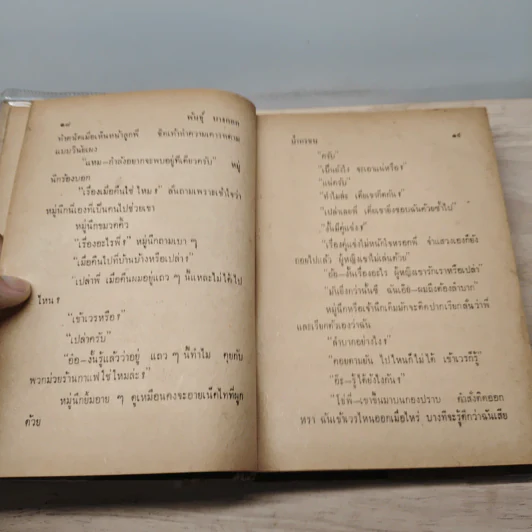 ๑๘ พันธุ์ บางกอก
ทำตะบัดเมื่อเห็นหน้าลูกพี่ ชิดเท้าทำความเคารพตาม
แบบวินัยเผง
"แหม—กำลังอยากจะพบอยู่ทีเดียวครับ" หมู่
นึกร้องบอก
"เรื่องเมื่อคืนใช่ไหม?" ฉันถามเพราะเข้าใจว่า
หมู่นึกนี่เองที่เป็นคนไปช่วยเขา
หมู่นึกขมวดคิ้ว
"เรื่องอะไรพี่?" หมู่นึกถามเบา ๆ
"เมื่อคืนไปที่บ้านบ้างหรือเปล่า?"
"เปล่าพี่ เมื่อคืนผมอยู่แถว ๆ นี้แหละไม่ได้ไป
ไหน"
"เข้าเวรหรือ?"
"เปล่าครับ"
"อ้อ—งั้นรู้แล้วว่าอยู่ แถว ๆ นี้ทำไม คุยกับ
พวกม่วยร้านกาแฟใช่ไหมล่ะ?"
หมู่นึกยิ้มอาย ๆ ดูเหมือนคงจะอายเน็คไทที่ผูก
ด้วย
น้ำครอน ๑๙
"ครับ"
"เป็นยังไง จะเอาแน่หรือ?"
"แน่ครับ"
"ทำไมล่ะ เตี่ยเขากีดกัน?"
"เปล่าเลยพี่ เตี่ยเขายังชอบฉันด้วยซ้ำไป"
"งั้นมีคู่แข่ง?"
"เรื่องคู่แข่งไม่หนักใจหรอกพี่ จ่าแสวงเองก็ยัง
ถอยไปแล้ว ผู้หญิงเขาไม่เล่นด้วย
"อ้อ—งั้นเรื่องอะไร ผู้หญิงเขารักเราหรือเปล่า"
"มันยิ่งกว่านั้นซี ฉันเอ้ย—ผมถึงต้องลำบาก"
หมู่นึกหรือเจ้านึกเคยมักจะติดปากเรียกฉันว่าพี่
และเรียกตัวเองว่าฉัน
"ลำบากอย่างไร?"
"คอยตามฉัน ไปไหนก็ไม่ได้ เข้าเวรก็รู้"
"อ๊ะ—รู้ได้ยังไงกัน?"
"โธ่พี่—เขาขึ้นมาบนกองปราบ คำสั่งติดออก
หรา ฉันเข้าเวรไหนออกเมื่อไหร่ บางทีจะรู้ดีกว่าฉันเสีย